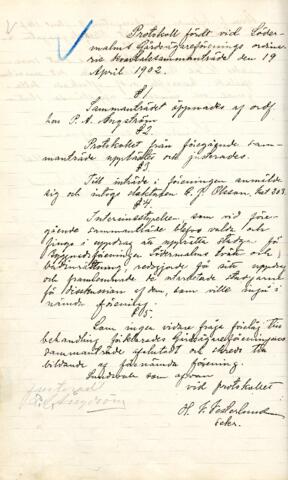 Protokoll fördt vid Söder-
malms Gårdegareförenings ordina-
rie kvartalssammanträde den 19
April 1902.
§1.
Sammanträdet öppnades af ordf.
hrr P. A. Ångström
§2.
Protokollet från föregående sam-
manträde upplästes och justerades.
§3.
Till inträde i föreningen anmälde
sig och intogs C. J. Olsson,
§4.
Interimsstyrelsen, som vid före-
gående sammanträde blefvo valda och
fingo i uppdrag att upprätta stadgar för
Byggnadsföreningen Södermalms
redogjorde för sitt uppdrag
och framlemnade de utarbetade stadgarne
för diskussion af dem, som ville ingå i
nämnda förening.
§5.
Som ingen vidare fråga förelåg till
behandling förklarades Gårdegareföreningens
sammanträde afslutadt och skreds till
bildande af förnämda förening.
Sundsvall som ofvan
vid protokollet
H. F. Vesterlund
sekr.
Justerad
P. A. Ångström